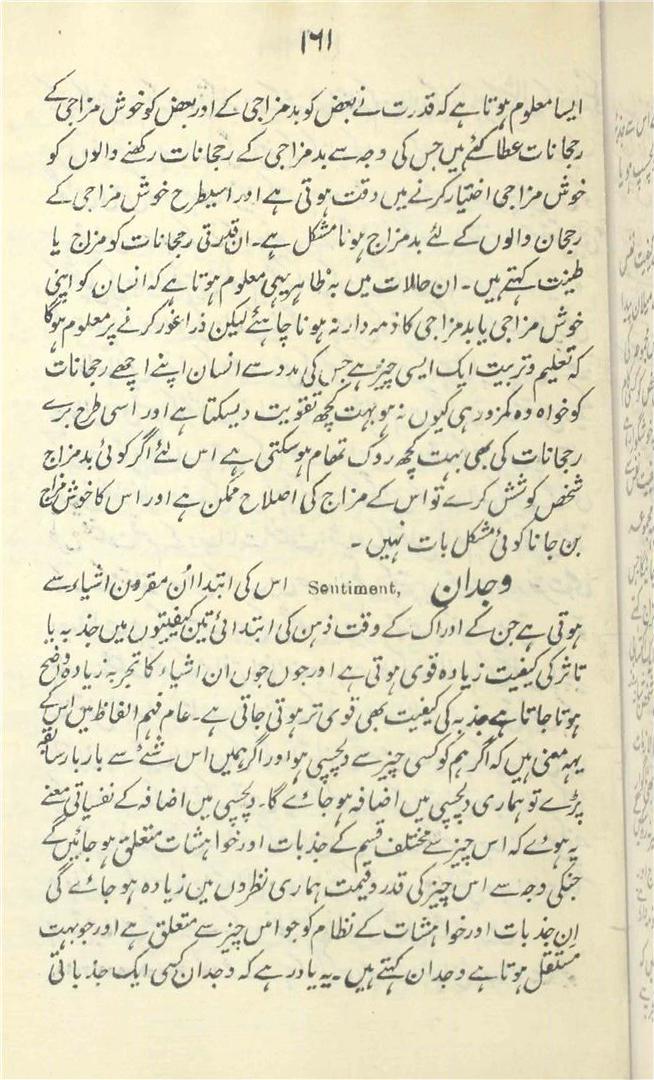 ۱۶۱
ایسا معلوم ہوتا ہے کہ قدرت نے بعض کو بدمزاجی کے اور بعض کو خوش مزاجی کے
رجحانات عطا کئے ہیں جس کی وجہ سے بدمزاجی کے رجحانات رکھنے والوں کو
خوش مزاجی اختیار کرنے میں دقت ہوتی ہے اور اسیطرح خوش مزاجی کے
رجحان والوں کے لئے بدمزاج ہونا مشکل ہے۔ ان قدرتی رجحانات کو مزاج یا
طینت کہتے ہیں۔ ان حالات میں بہ ظاہر یہی معلوم ہوتا ہے کہ انسان کو اپنی
خوش مزاجی یا بدمزاجی کا ذمہ دار نہ ہونا چاہئے لیکن ذرا غور کرنے پر معلوم ہوگا
کہ تعلیم و تربیت ایک ایسی چیز ہے جس کی مدد سے انسان اپنے اچھے رجحانات
کو خواہ وہ کمزور ہی کیوں نہ ہو بہت کچھ تقویت دیسکتا ہے اور اسی طرح برے
رجحانات کی بھی بہت کچھ روک تھام ہوسکتی ہے اس لئے اگر کوئی بدمزاج
شخص کوشش کرے تو اس کے مزاج کی اصلاح ممکن ہے اور اس کا خوش مزاج
بن جانا کوئی مشکل بات نہیں۔
وجدان Sentiment, اس کی ابتدا اُن مقرون اشیاء سے
ہوتی ہے جن کے ادراک کے وقت ذہن کی ابتدائی تین کیفیتوں میں جذبہ یا
تاثر کی کیفیت زیادہ قوی ہوتی ہے اور جوں جوں ان اشیاء کا تجربہ زیادہ وضح
ہوتا جاتا ہے جذبہ کی کیفیت بھی قوی تر ہوتی جاتی ہے۔ عام فہم الفاظ میں اس کے
یہہ معنی ہیں کہ اگر ہم کو کسی چیز سے دلچسپی ہو اور اگر ہمیں اس شئے سے بار بار سابقہ
پڑے تو ہماری دلچسپی میں اضافہ ہو جائے گا۔ دلچسپی میں اضافہ کے نفسیاتی معنے
یہ ہوے کہ اس چیز سے مختلف قسم کے جذبات اور خواہشات متعلق ہو جائیں گے
جنکی وجہ سے اس چیز کی قدر و قیمت ہماری نظروں میں زیادہ ہو جائے گی
اِن جذبات اور خواہشات کے نظام کو جو اس چیز سے متعلق ہے اور جو بہت
مستقل ہوتا ہے وجدان کہتے ہیں۔ یہ یاد رہے کہ وجدان کسی ایک جذباتی